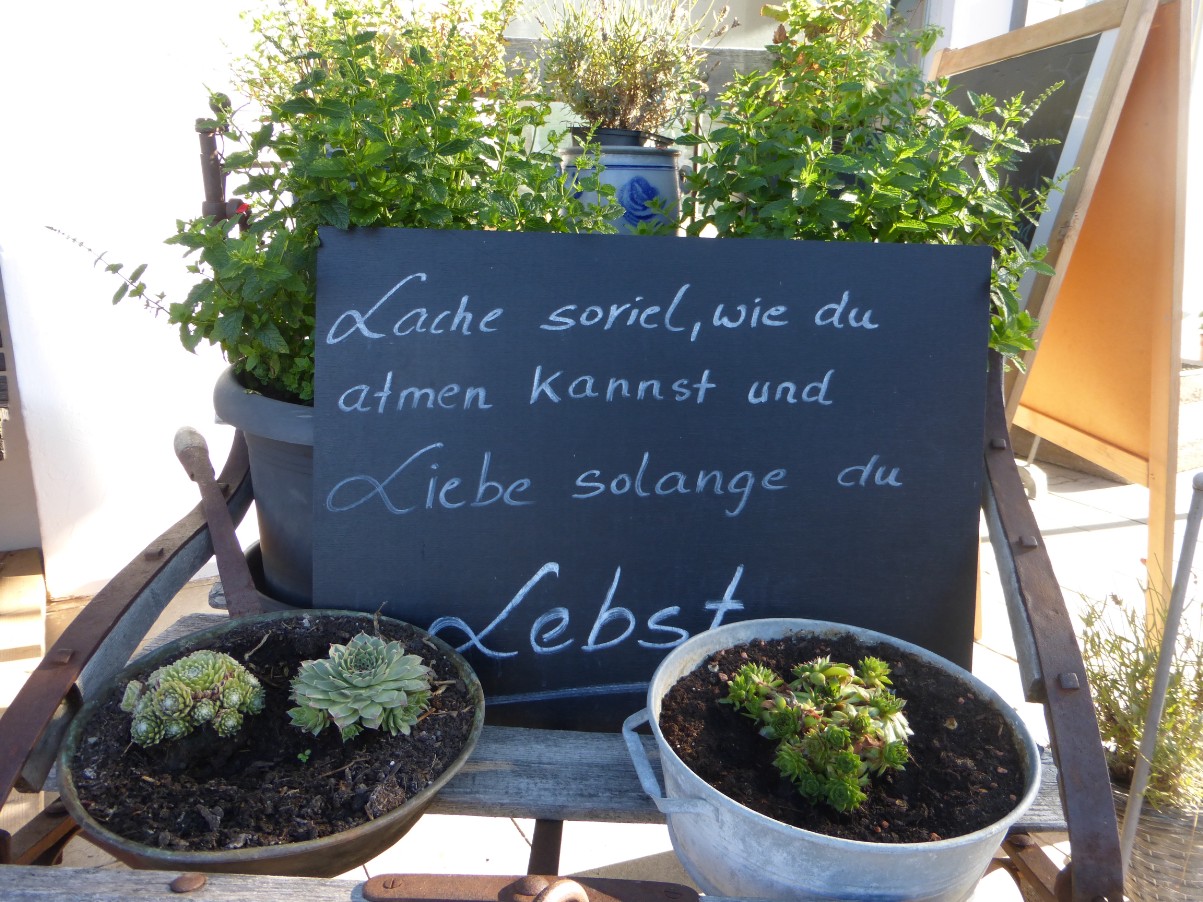 Lache soriel, wie du
atmen kannst und
Liebe solange du
Lebst